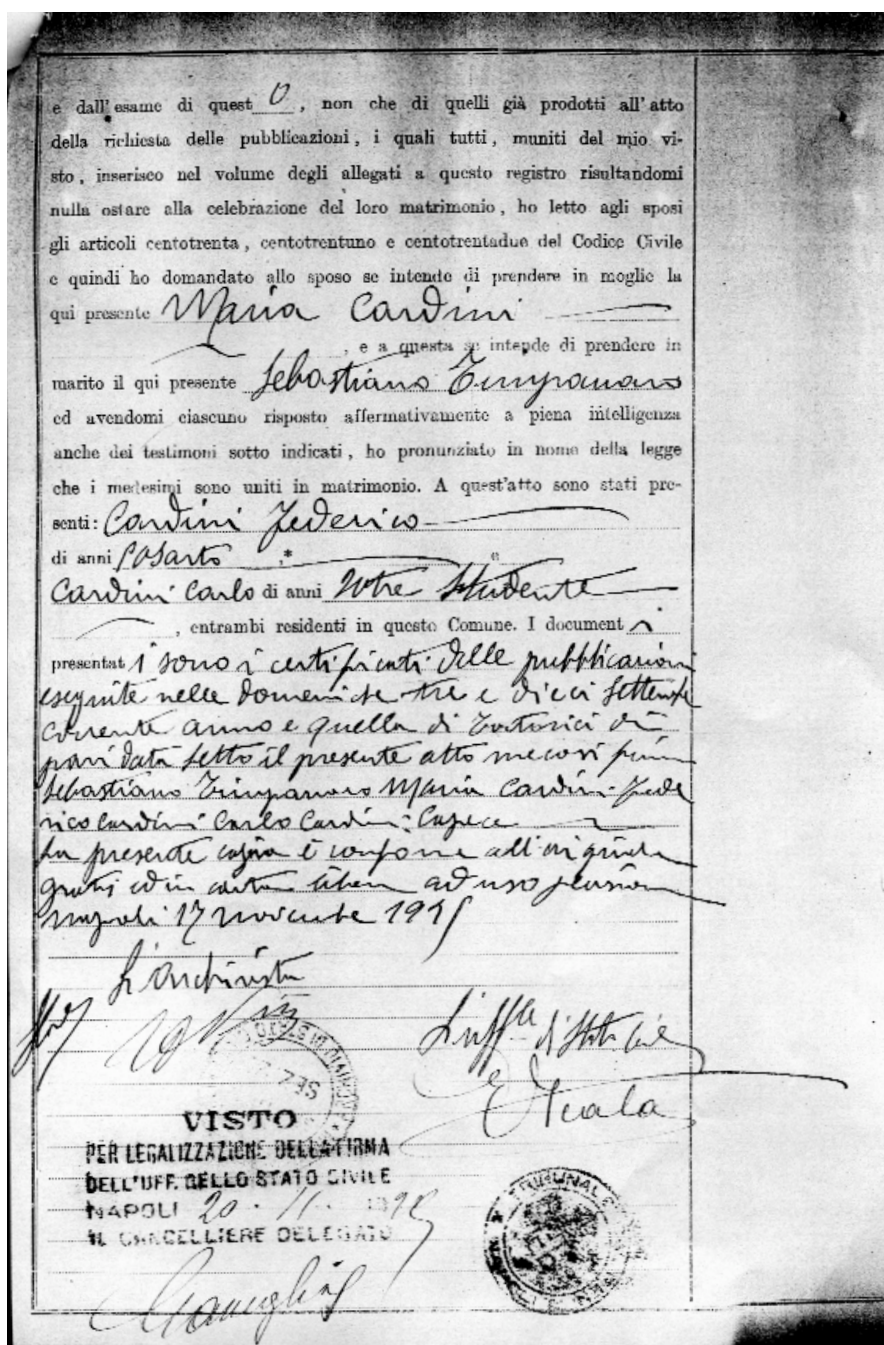 e dall'esame di quest o, non che di quelli già prodotti all'atto
della richiesta delle pubblicazioni, i quali tutti, muniti del mio vi-
sto, inserisco nel volume degli allegati a questo registro risultandomi
nulla ostare alla celebrazione del loro matrimonio, ho letto agli sposi
gli articoli centotrenta, centotrentuno e centotrentadue del Codice Civile
e quindi ho domandato allo sposo se intende di prendere in moglie la
qui presente Maria Cardini
, e a questa se intende di prendere in
marito il qui presente Sebastiano Timpanaro
ed avendomi ciascuno risposto affermativamente a piena intelligenza
anche dei testimoni sotto indicati, ho pronunziato in nome della legge
che i medesimi sono uniti in matrimonio. A quest'atto sono stati pre-
senti: Cardini Federico
di anni
Cardini Carlo di anni studente
, entrambi residenti in questo Comune. I document i
presentat i sono i certificati delle pubblicazioni
eseguite nelle domeniche tre e dieci settembre
corrente anno e quella di Tortorici di
pari data letto il presente atto
Sebastiano Timpanaro Maria Cardini Fede
rico Cardini Carlo Cardini
La presente copia è conforme all'originale
gratis ed in carta libera ad uso pensione
Napoli 17 novembre
L'Archivista
L'uff.le di Stato Civile
VISTO
PER LEGALIZZAZIONE DELLA FIRMA
DELL'UFF. DELLO STATO CIVILE
NAPOLI 20 . 11 .
IL CANCELLIERE DELEGATO
TRIBUNALE